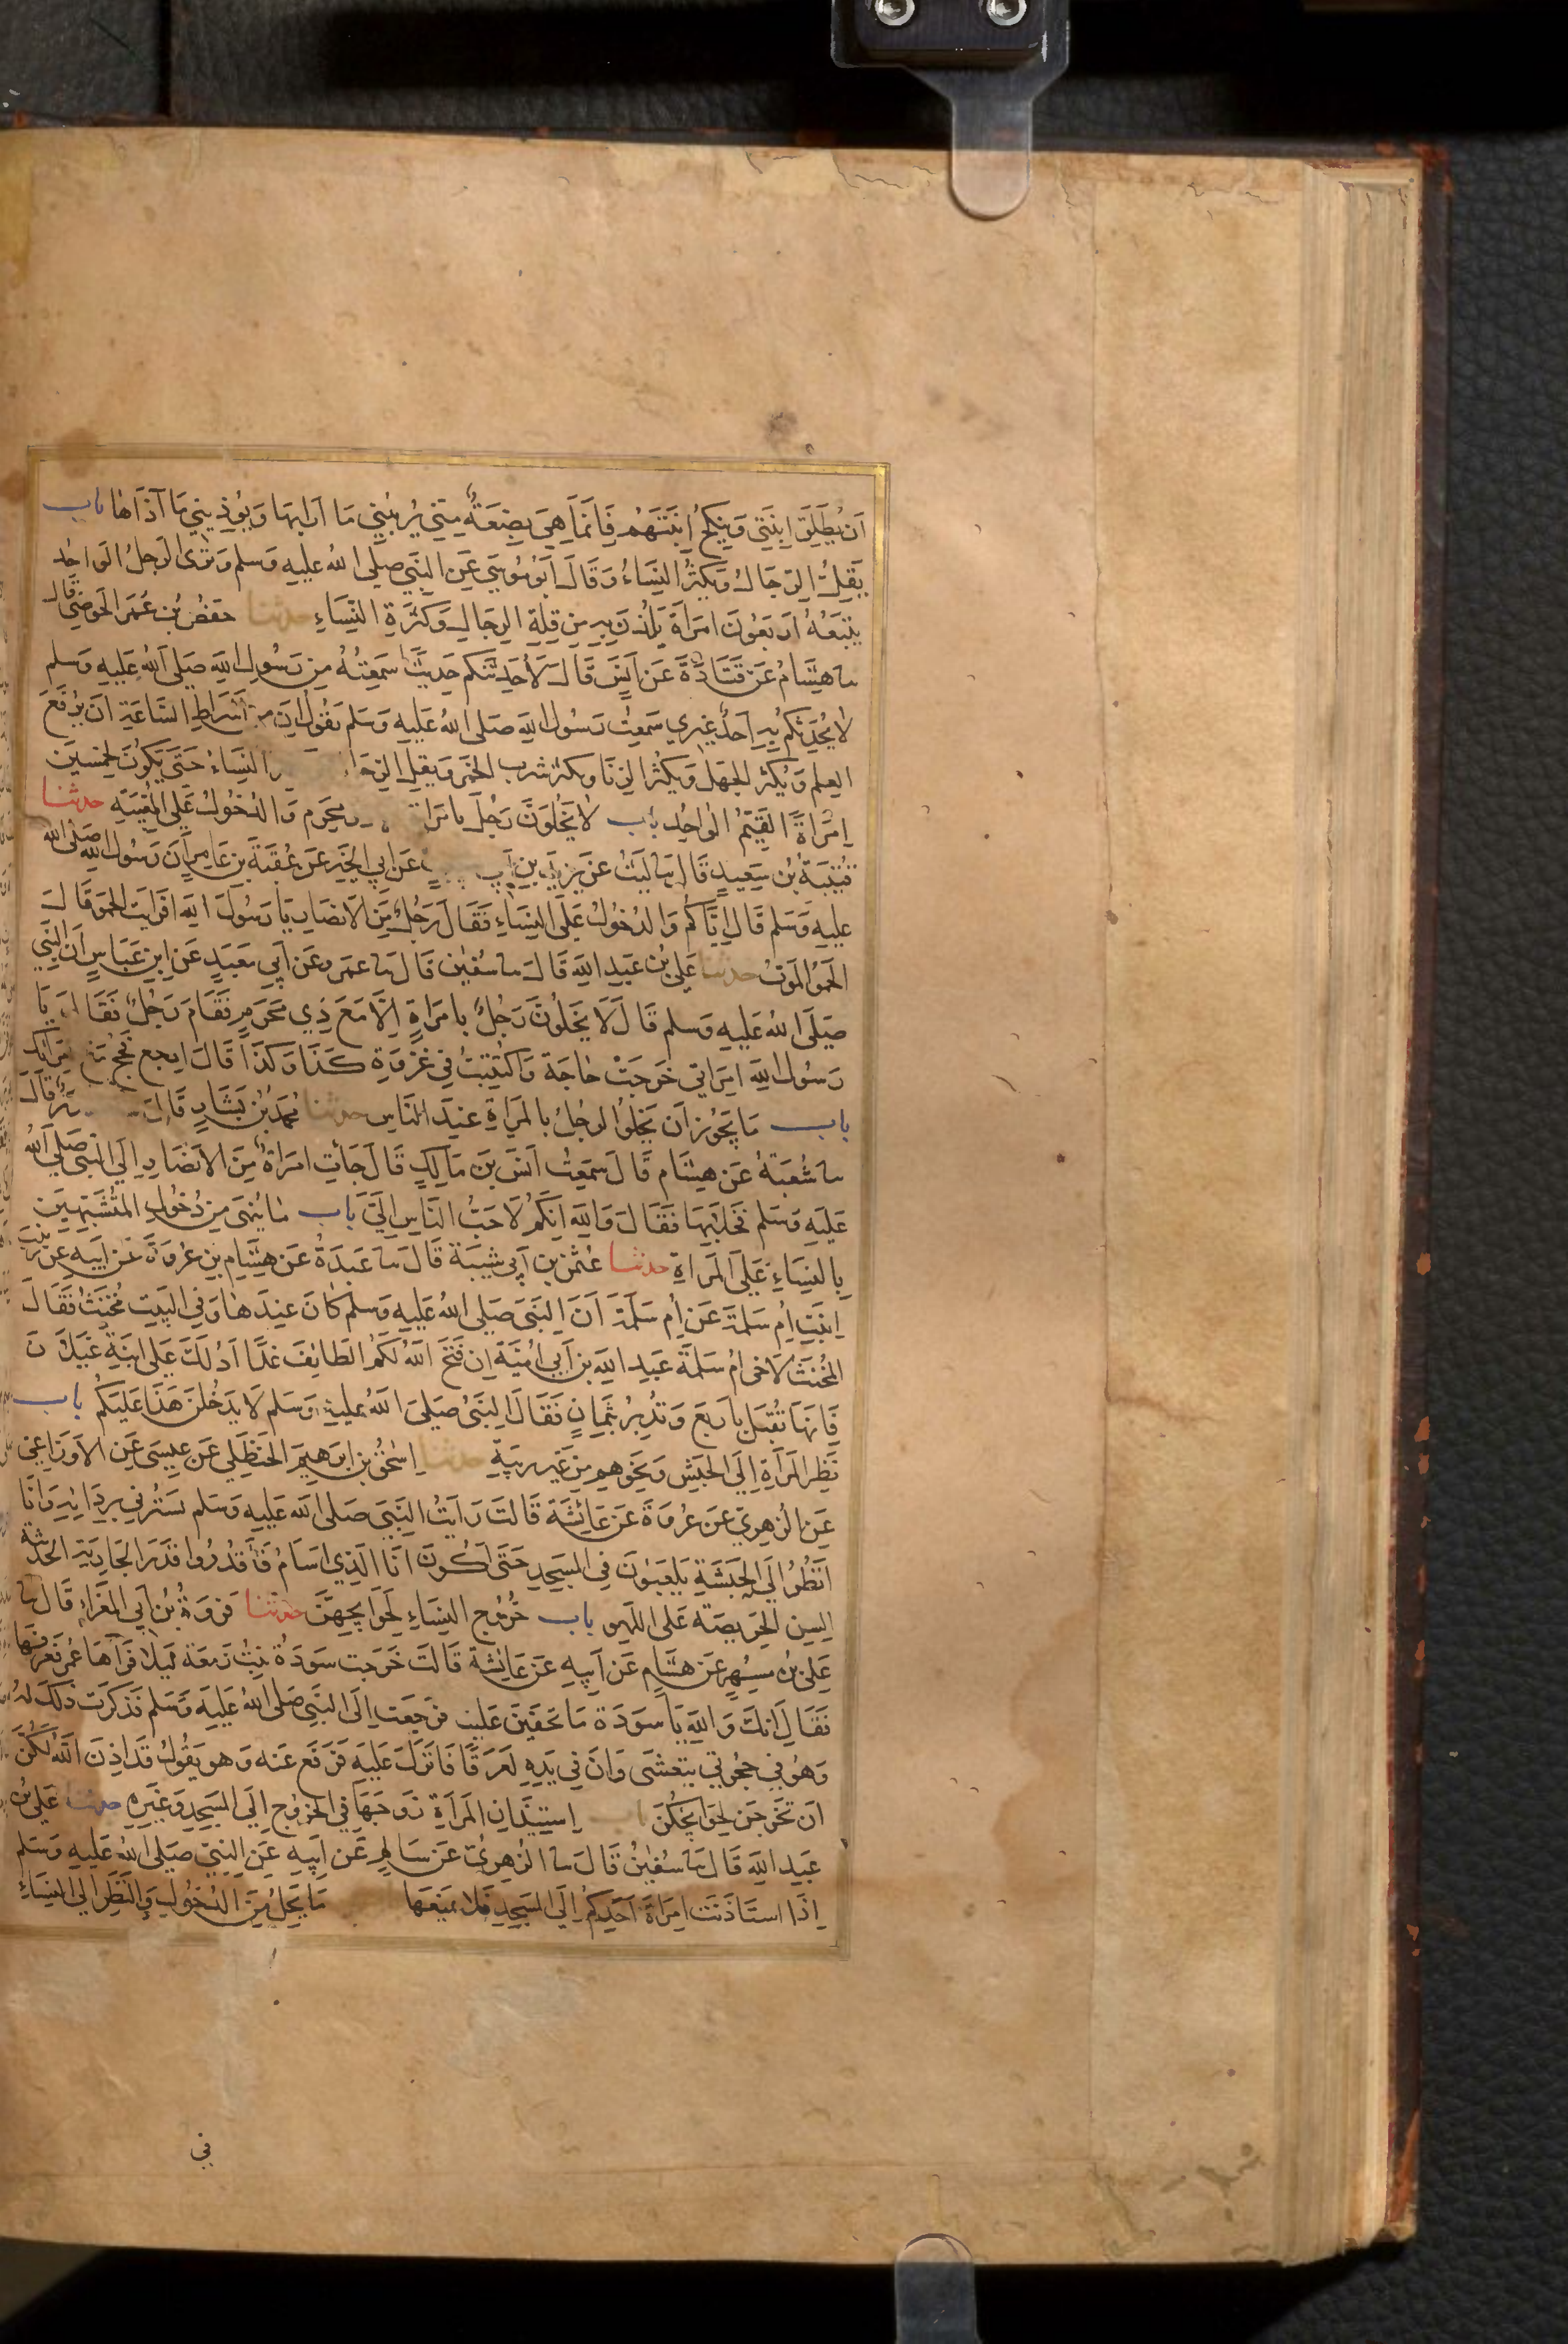 اَن يُطَلِّقَ ابنَتِى وَيَنكِحَ اِبنَتَهُم فَاِنَّمَا هِىَ بَضعَةٌ مِنّى يُرِيبُنِي مَا اَرَابَهَا وَيُؤذِينِى مَا آذَاهَا باب
يَقِلُّ الرِّجَالُ وَيَكثُرُ النِّسَاءُ وَقَالَ اَبُو مُوسَى عَنِ النَّبِىِّ صَلى الله عَليهِ وَسلم وَتَرَى الرجلَ الوَاحِد
يَتبَعُهُ اَربَعُونَ امرَاَةً يَلُذنَ بِهِ مِن قِلَّةِ الرِّجَالِ وَكَثرَةِ النِّسَاءِ حدثنا حَفصُ بنُ عُمَرَ الحَوضِى قَالَ
سا هِشَامُ عَن قَتَادَةَ عَن اَنَسٍ قَالَ لَاُحَدِّثَنَّكُم حَدِيثًا سَمِعتُهُ مِن رَسُولِ اللهِ صَلى اللهُ عَليهِ وَسلم
لا يُحَدِّثُكُم بِهِ اَحَدٌ غَيرِي سَمِعتُ رَسُولَ اللهِ صَلى اللهُ عَليهِ وَسَلم يَقُولُ اِنَّ مِن اَشرَاطِ السَّاعَةِ اَن يُرفَعَ
العِلمُ وَيَكثُرَ الجَهلُ وَيَكثُرَ الزِّنَا ويكثر شربُ الخَمرِ وَيَقِلَّ الرِّجَا النِّسَاءُ حَتَّى يَكُونَ لِخَمسِينَ
امرَاَةً القَيِّمُ الوَاحِدُ باب لا يَخلُوَنَّ رَجُلٌ بِامرَاة محرم وَالدُّخُولُ عَلَى المُغِيبَةِ حدثنا
قُتَيبَةُ بنُ سَعِيدٍ قَالَ سا لَيثٌ عَن يَزِيدَ بنِ اَبِى عَن اَبِى الخَيرِ عَن عُقبَةَ بنِ عَامِرٍ اَنَّ رَسُولَ اللهِ صَلَّى الله
عَليهِ وَسَلم قَالَ اِيَّاكُم وَالدُّخُولَ عَلَى النِّسَاءِ فَقَالَ رَجُلٌ مِنَ الاَنصَارِ يَا رَسُولَ اللهِ اَفَرَاَيتَ الحَموَ قَالَ
الحَموُ المَوتُ حدثنا عَلِىُّ بنُ عَبدِ اللهِ قَالَ سا سُفيٰن قَالَ سا عَمرو عَن اَبِي مَعبَدٍ عَنِ ابنِ عَبَّاسٍ اَنَّ النَّبِي
صَلَّى اللهُ عَلَيهِ وَسلم قَالَ لَا يَخلُوَنَّ رَجُلٌ بِامرَاَةٍ اِلَّا مَعَ ذِي مَحرَمٍ فَقَامَ رَجُلٌ فَقَالَ يَا
رَسُولَ اللهِ امرَاَتِي خَرَجَتْ حَاجَةً وَاكتُتِبتُ فِي غَزوَةِ كَذَا وَكَذَا قَالَ ارجِع فَحُجَّ مَعَ امرَاَتِكَ
باب مَا يَجُوزُ اَن يَخلُوَ الرجُلُ بالمَراَةِ عِندَ النَّاسِ حدثنا مُحمدُ بنُ بَشَّارٍ قَالَ قَالَ
سا شُعبَةُ عَن هِشَامٍ قَالَ سَمِعتُ اَنَسَ بنَ مَالِكٍ قَالَ جَاءَتِ امرَاَةٌ مِنَ الاَنصَارِ اِلَى النَّبِىِّ صَلَّى اللهُ
عَلَيهِ وَسَلم فَخَلَا بِهَا فَقَالَ وَاللهِ اِنَّكُم لَاَحَبُّ النَّاسِ اِلَىَّ باب مَا يُنهَى مِن دُخُولِ المُتَشَبِّهِينَ
بِالنِّسَاءِ عَلَى المَراَةِ حدثنا عُثمٰنُ بنُ اَبِى شَيبَةَ قَالَ سا عَبدَةُ عَن هِشَامِ بنِ عُروَةَ عَن اَبِيهِ عَن زَينَبَ
ابنَتِ اُمِّ سَلمَةَ عَن اُمِّ سَلَمَةَ اَنَّ النَّبِىَّ صَلى اللهُ عَليهِ وَسلم كَانَ عِندَهَا وَفِى البَيتِ مُخَنَّثٌ فَقَالَ
المُخَنَّثُ لِاَخِى اُمِّ سَلَمَةَ عَبدِ اللهِ بنِ اَبِي اُمَيَّةَ اِن فَتَحَ اللهُ لَكُمُ الطَّائِفَ غَدًا اَدُلُّكَ عَلَى ابنَةِ غَيلَانَ
فَاِنَّهَا تُقبِلُ بِاَربَعٍ وَتُدبِرُ بِثَمَانٍ فَقَالَ النَّبِىُّ صَلى اللهُ عليهِ وَسَلم لَا يَدخُلَنَّ هَذَا عَلَيكُم باب
نَظَرِ المَرأَةِ اِلَى الحَبَشِ وَنَحوِهِم مِن غَيرِ رِيبَةٍ حدثنا اِسحٰقُ بنُ ابرَهِيمَ الحَنظَلِى عَن عِيسَى عَنِ الاَوزَاعِي
عَنِ الزُهرِي عَن عُروَةَ عَن عَائِشَةَ قَالَت رَاَيتُ النَّبِىَّ صَلى الله عَليهِ وَسَلم يَستُرُنِي بِرِدَائِهِ وَاَنَا
اَنظُرُ اِلَى الحَبَشَةِ يَلعَبُونَ فِى المَسجِدِ حَتَّى اَكُونَ اَنَا الَّذِي اَسأَمُ فَاقدُرُوا قَدرَ الجَارِيَةِ الحَدِيثَةِ
السِّنِّ الحَرِيصَةِ عَلَى اللهوِ باب خُرُوجِ النِّسَاءِ لِحَوَائِجِهِنَّ حدثنا فَروَةُ بنُ اَبِي المَغرَاءِ قَالَ سا
عَلِىُّ بنُ مُسهِرٍ عَن هِشَامٍ عَن اَبِيهِ عَن عَائِشَةَ قَالَت خَرَجَت سَودَةُ بِنتُ زَمعَةَ لَيلًا فَرَآهَا عُمَرُ فَعَرَفَهَا
فَقَالَ اِنَّكَ وَاللهِ يَا سَودَةُ مَا تَخفَينَ عَلَينا فَرَجَعَت اِلَى النَّبِىِّ صَلى اللهُ عَلَيهِ وَسلم فَذَكَرَت ذَلِكَ لَهُ
وَهُوَ فِى حُجرَتِي يَتَعَشَّى وَاِنَّ فِي يَدِهِ لَعَرقًا فَاَنزَلَ عَلَيهِ فَرَفَعَ عَنه وَهو يَقُولُ قَد اَذِنَ اللهُ لَكُنَّ
اَن تَخرُجنَ لِحَوَائِجِكُنَّ باب اِستِيذَانِ المَراَةِ زَوجَهَا فِي الخُرُوجِ اِلَى المَسجِدِ وَغَيرِهِ حدثنا عَلِىُّ بن
عَبدِ اللهِ قَالَ سا سُفيٰنُ قَالَ سا الزُهرِىُّ عَن سَالِمٍ عَن اَبِيهِ عَنِ النَّبِىِّ صَلى اللهُ عَليهِ وَسَلم
اِذَا استَاذَنَت امرَاَةُ اَحَدِكُم اِلَى المَسجِدِ فَلَا يَمنَعهَا مَا يَحِلُّ مِنَ الدُّخُولِ وَالنَّظَرِ اِلَى النِّسَاءِ
فى